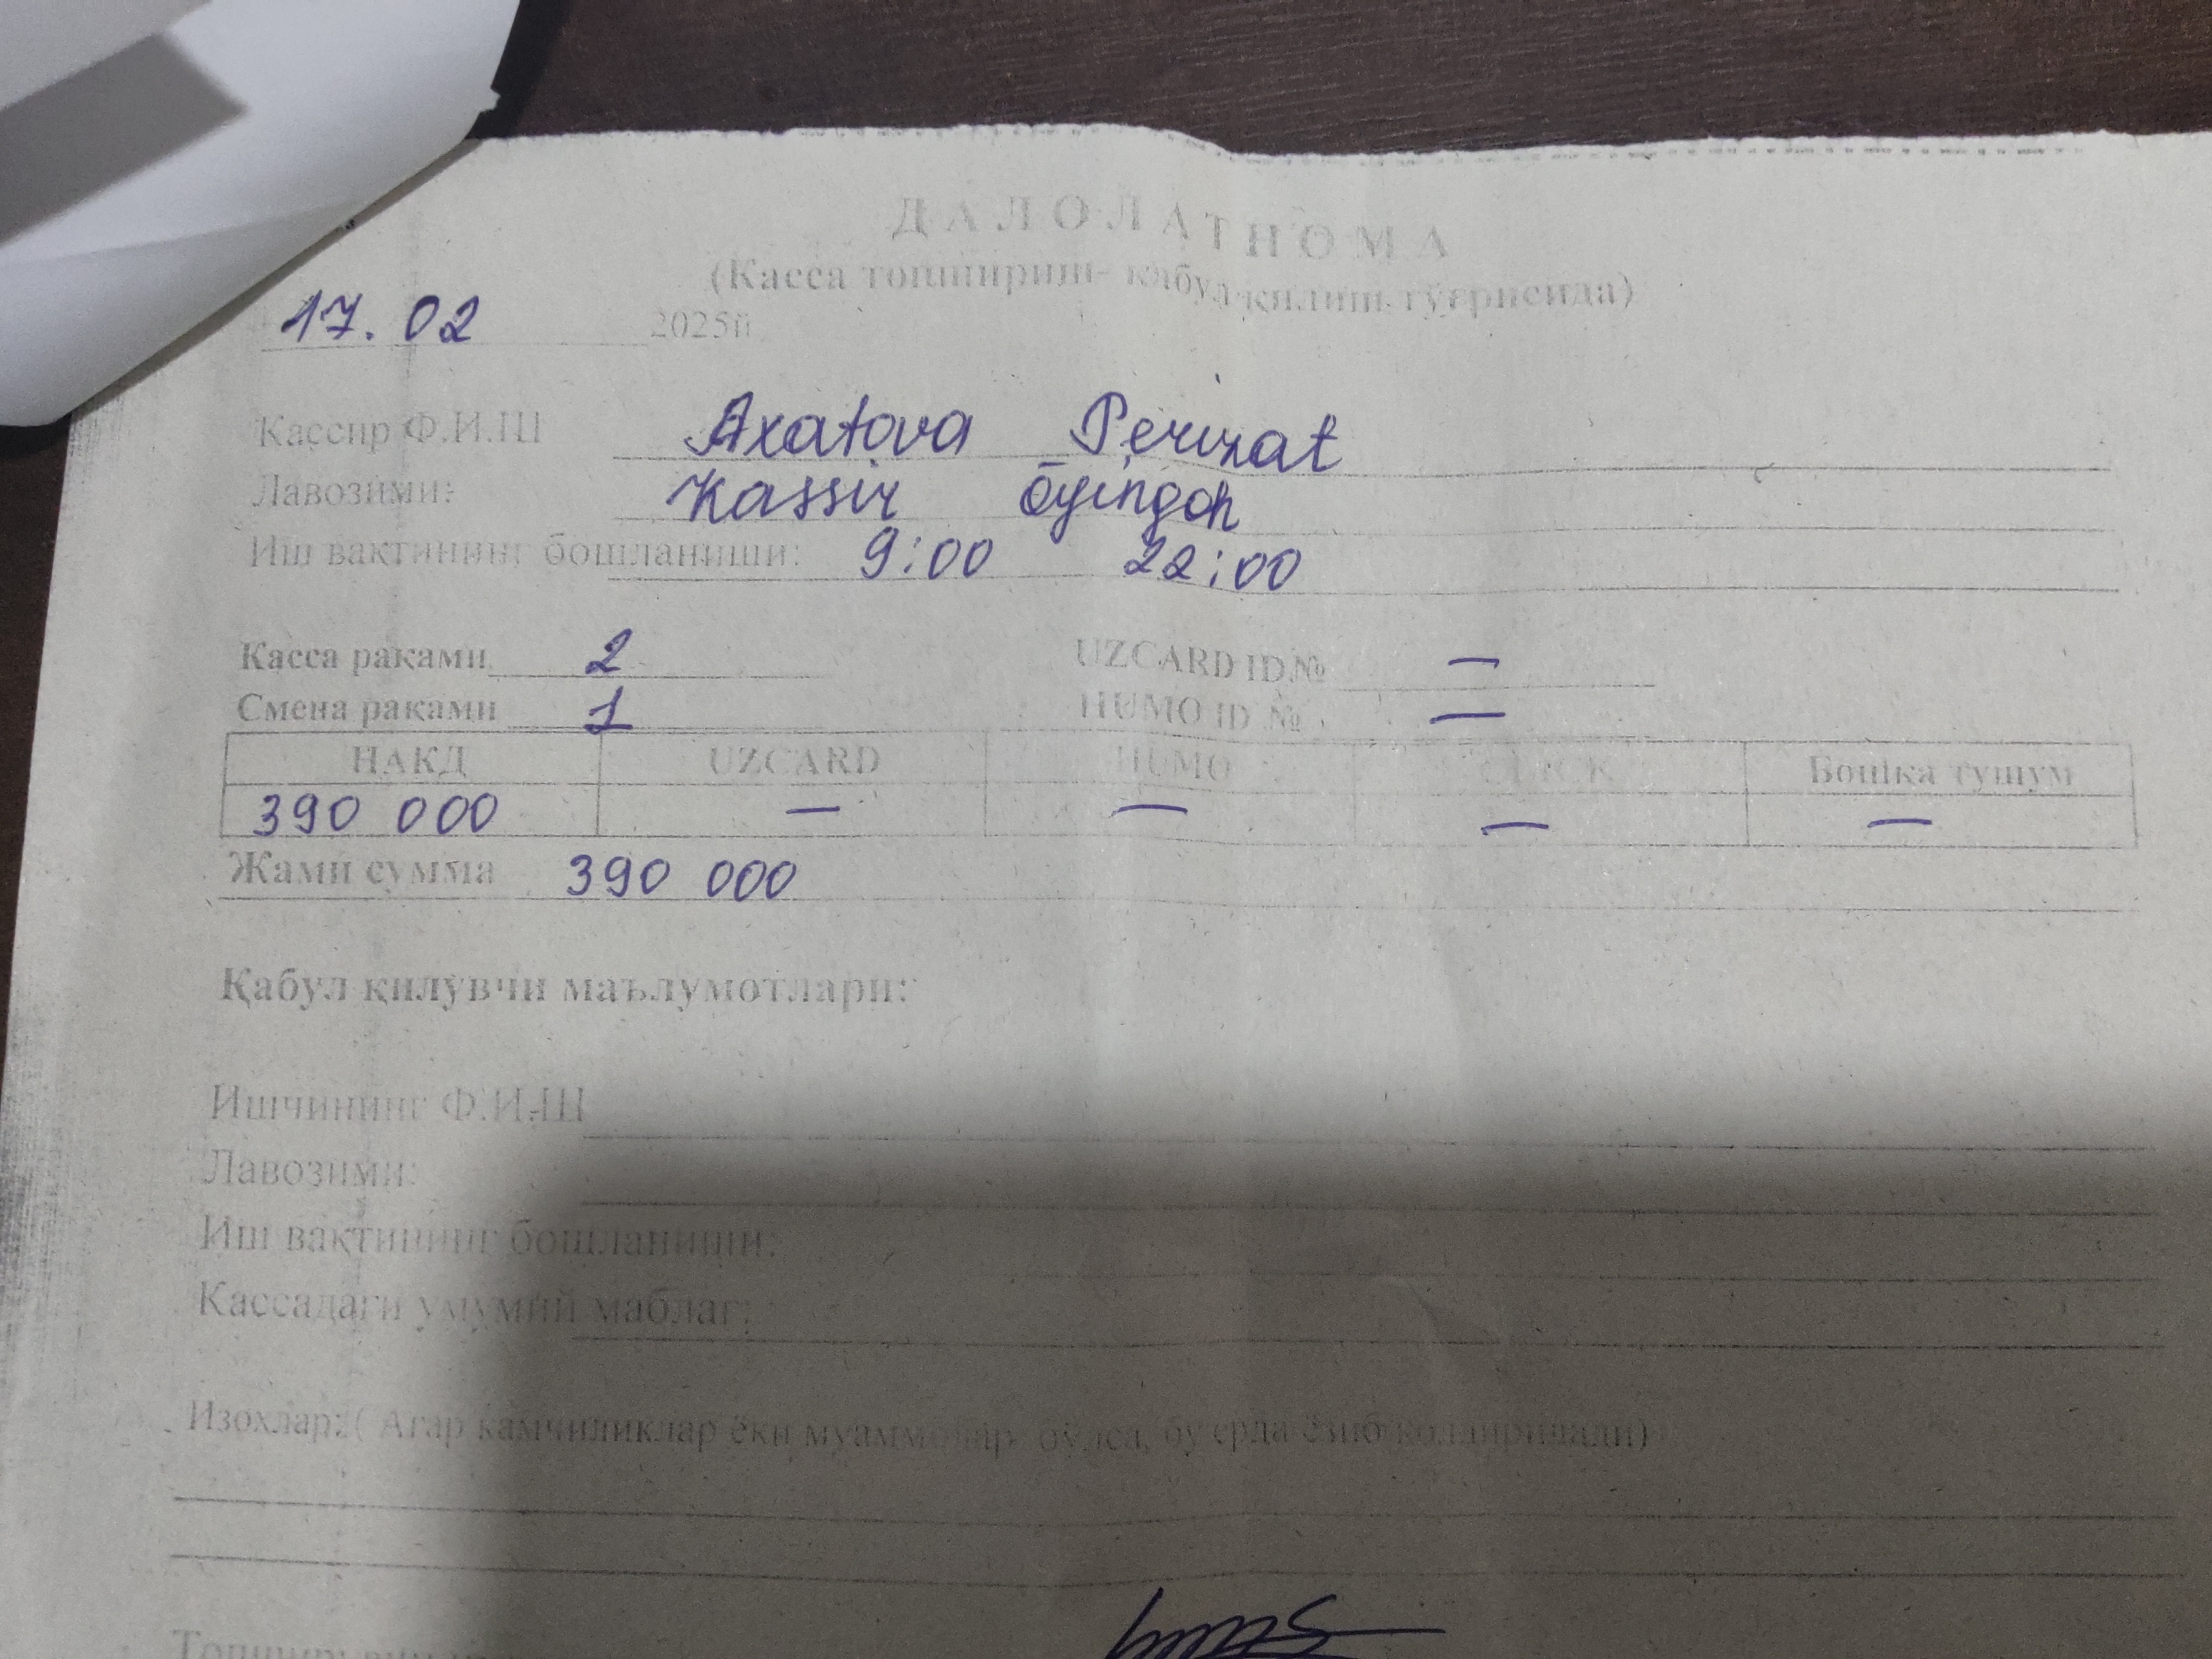 ДАЛОЛАТНОМА
(Касса топшириш- қабул қилиш тўғрисида)
17.02 2025й
Кассир Ф.И.Ш Axatova Perizat
Лавозими: Kassir Ōyingoh
Иш вақтининг бошланиши: 9:00 22:00
Касса рақами 2 UZCARD ID№ —
Смена рақами 1 HUMO ID № —
НАКД UZCARD HUMO CLICK Бошқа тушум
390 000 — — — —
Жами сумма 390 000
Қабул қилувчи маълумотлари:
Ишчининг Ф.И.Ш
Лавозими:
Иш вақтининг бошланиши:
Кассадаги умумий маблағ:
Изохлар:( Агар камчиликлар ёки муаммолар бўлса, бу ерда ёзиб қолдирилади)